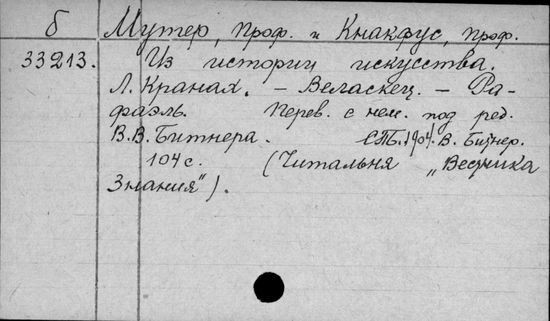 б Мутер, проф. и Кнакфус, проф.
33213. Из истории искусства.
Л. Кранах. – Веласкец. – Ра-
фаэль. Перев. с нем. под ред.
В.В. Битнера. СПБ. 1904. В. Битнер.
104 с. (Читальня „Вестника
Знания").